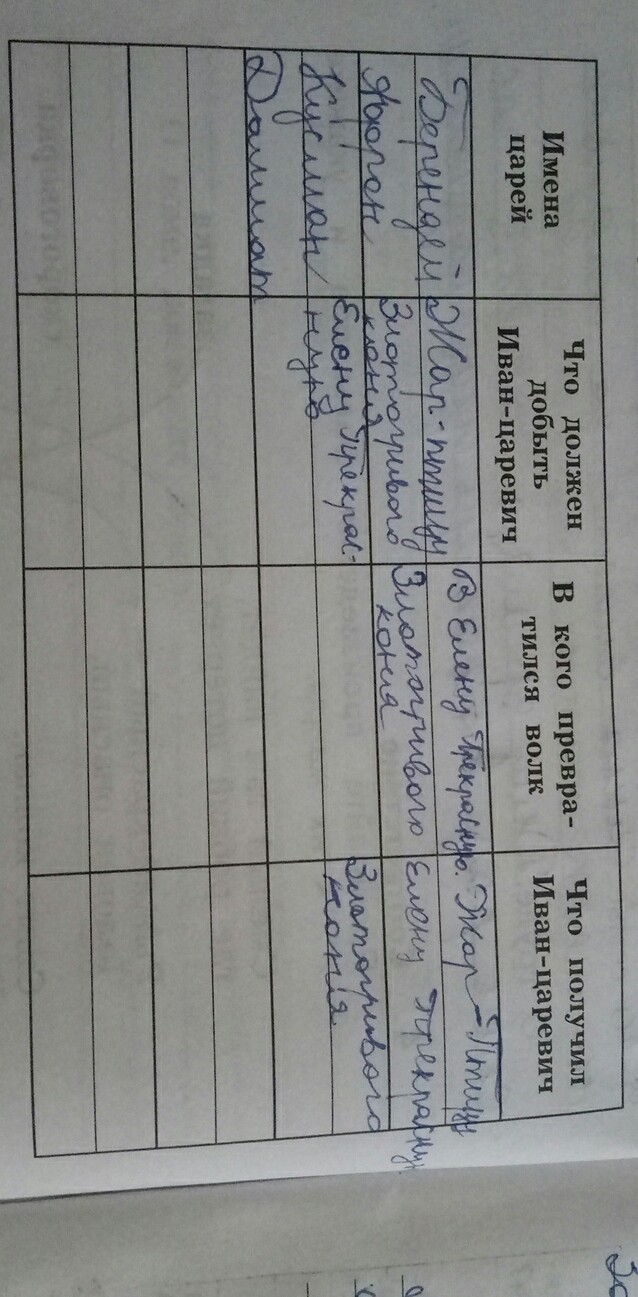 Имена царей
Что должен добыть Иван-царевич
В кого превратился волк
Что получил Иван-царевич
Берендей
Жар-птицу
В Елену Прекрасную.
Жар-Птицу
Афрон
Златогривого
коня
Златогривого
коня
Елену Прекрасную.
Кусман
Елену Прекрас-
ную
Златогривого
коня
Далмат